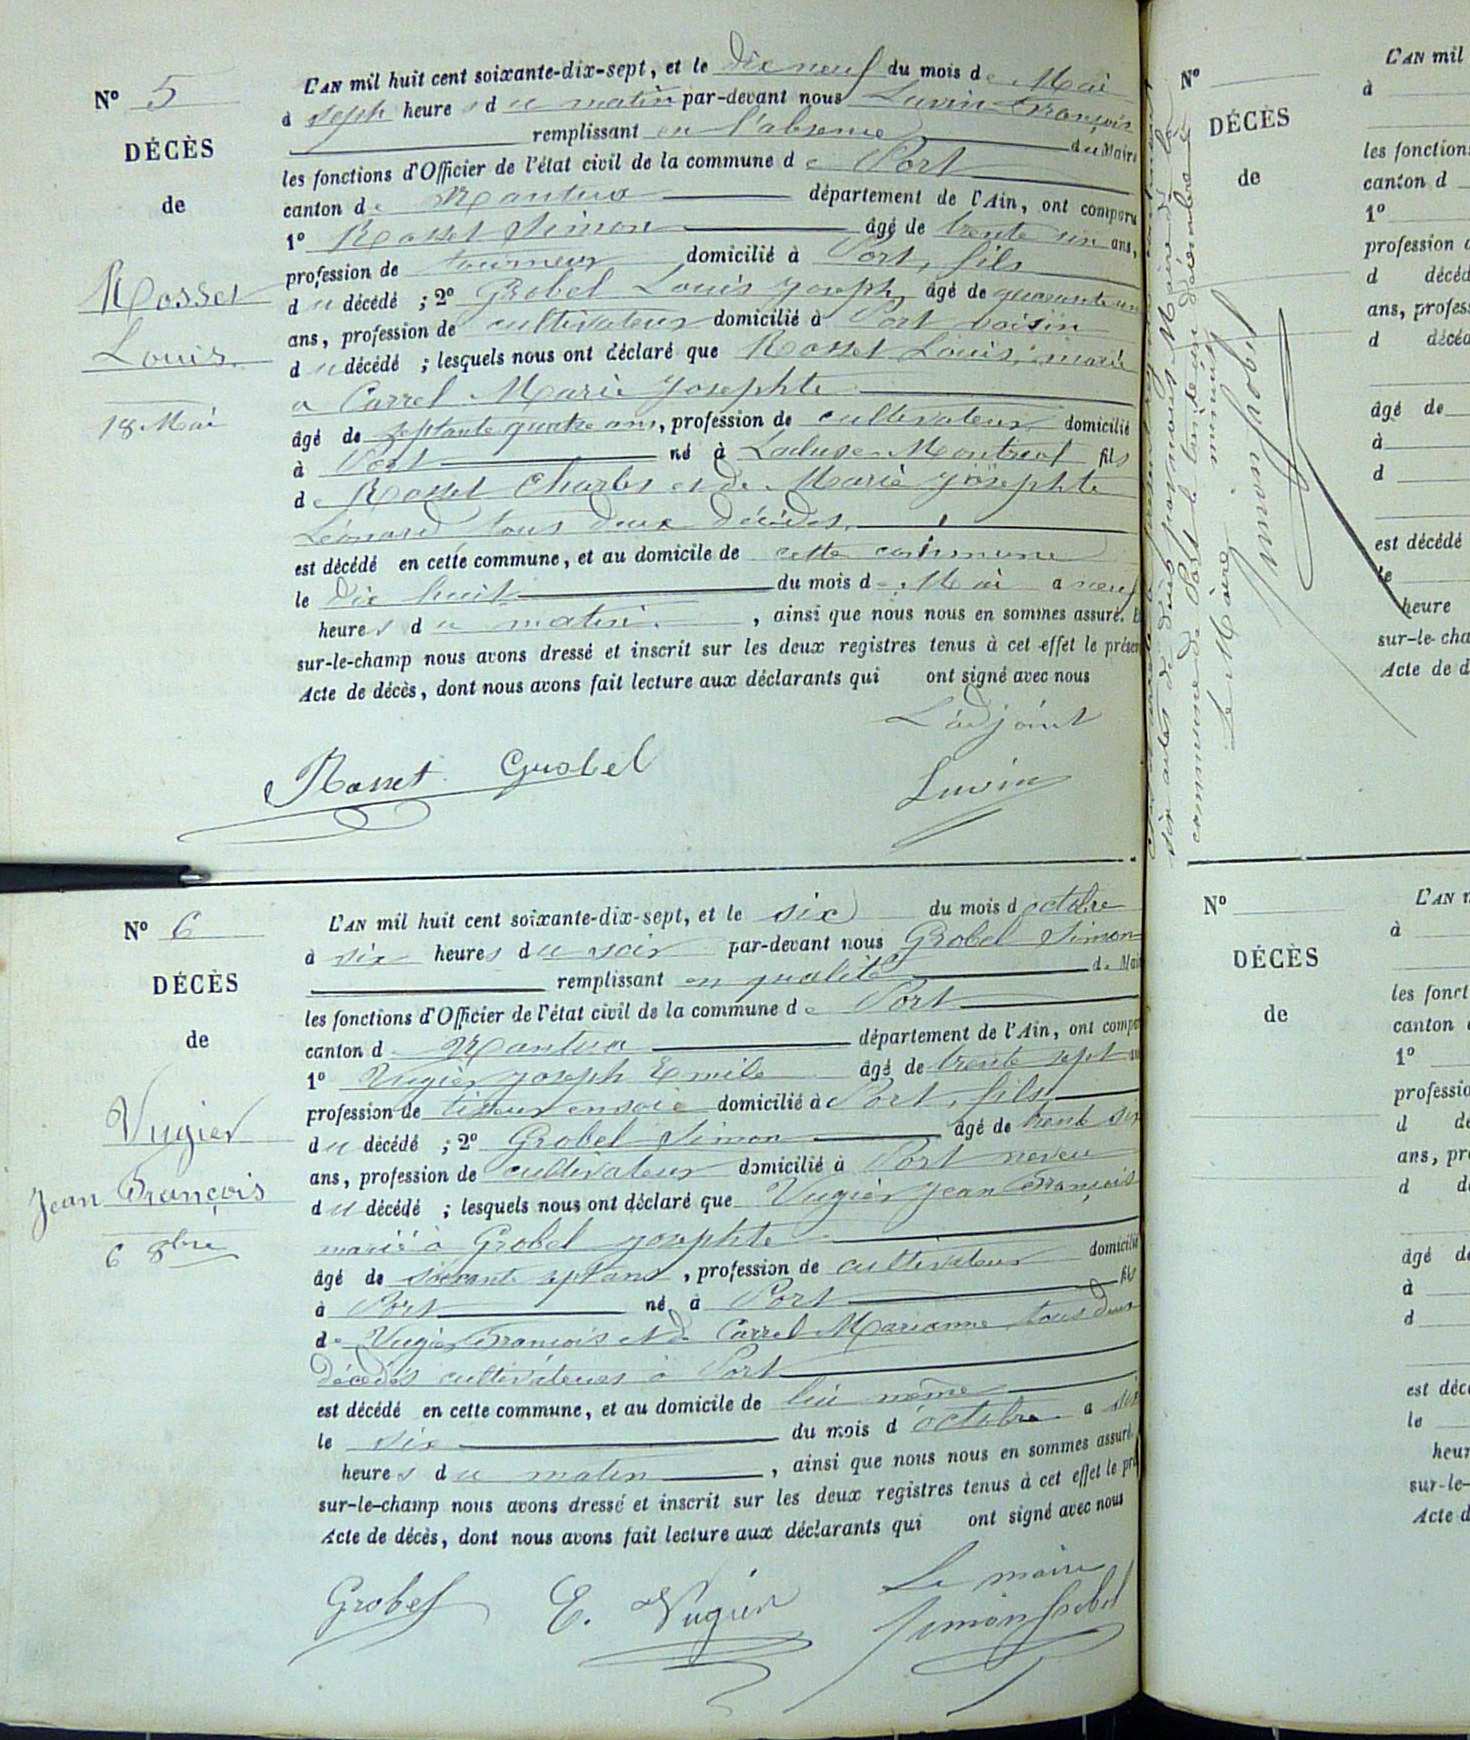 N° 5
DÉCÈS
de
Rosset
Louis
18 Mai
L'AN mil huit cent soixante-dix-sept, et le dix neuf du mois de Mai
à sept heures du matin par-devant nous Luvin François
remplissant en l'absence du Maire
les fonctions d'Officier de l'état civil de la commune de Port
canton de Nantua département de l'Ain, ont comparu
1° Rosset Simon âgé de trente un ans,
profession de tourneur domicilié à Port, fils
du décédé ; 2° Grobel Louis Joseph, âgé de quarante un
ans, profession de cultivateur domicilié à Port voisin
du décédé ; lesquels nous ont déclaré que Rosset Louis, marié
a Carrel Marie Josephte
âgé de septante quatre ans, profession de cultivateur domicilié
à Port né à Lacluse Montreal fils
de Rosset Charles et de Marie Josephte
Léonard tous deux décédés,
est décédé en cette commune, et au domicile de cette commune
le dix huit du mois de Mai a neuf
heures du matin , ainsi que nous nous en sommes assuré. E
sur-le-champ nous avons dressé et inscrit sur les deux registres tenus à cet effet le présen
Acte de décès, dont nous avons fait lecture aux déclarants qui ont signé avec nous
L'adjoint
Rosset Grobel
Luvin
N° 6
DÉCÈS
de
Vugier
Jean François
6 8bre
L'AN mil huit cent soixante-dix-sept, et le six du mois d octobre
à six heures du soir par-devant nous Grobel Simon
remplissant en qualité de Mai
les fonctions d'Officier de l'état civil de la commune de Port
canton de Nantua département de l'Ain, ont compa
1° Vugier Joseph Emile âgé de trente sept an
profession de tisseur en soie domicilié à Port, fils
du décédé ; 2° Grobel Simon âgé de trente six
ans, profession de cultivateur domicilié à Port neveu
du décédé ; lesquels nous ont déclaré que Vugier Jean François
marié à Grobel Josephte
âgé de soixante sept ans , profession de cultivateur domicilié
à Port né à Port fils
de Vugier François et de Carrel Marianne tous deux
décédés cultivateurs à Port
est décédé en cette commune, et au domicile de lui même
le six du mois d octobre a six
heures du matin , ainsi que nous nous en sommes assuré.
sur-le-champ nous avons dressé et inscrit sur les deux registres tenus à cet effet le pré
Acte de décès, dont nous avons fait lecture aux déclarants qui ont signé avec nous
Le maire
Grobel E. Vugier Simon Grobel
six actes de décès par nous Maire de la
commune de Port le trente un décembre à
minuit
Le Maire
Simon Grobel
N°
DÉCÈS
de
L'AN mil
à
les fonctions
canton d
1°
profession d
d décéd
ans, profess
d décéd
âgé de
à
d
est décédé
le
heure
sur-le-cha
Acte de d
N°
DÉCÈS
de
L'AN m
à
les fonct
canton d
1°
professio
d dé
ans, pro
d d
âgé de
à
d
est déce
le
heur
sur-le-
Acte d